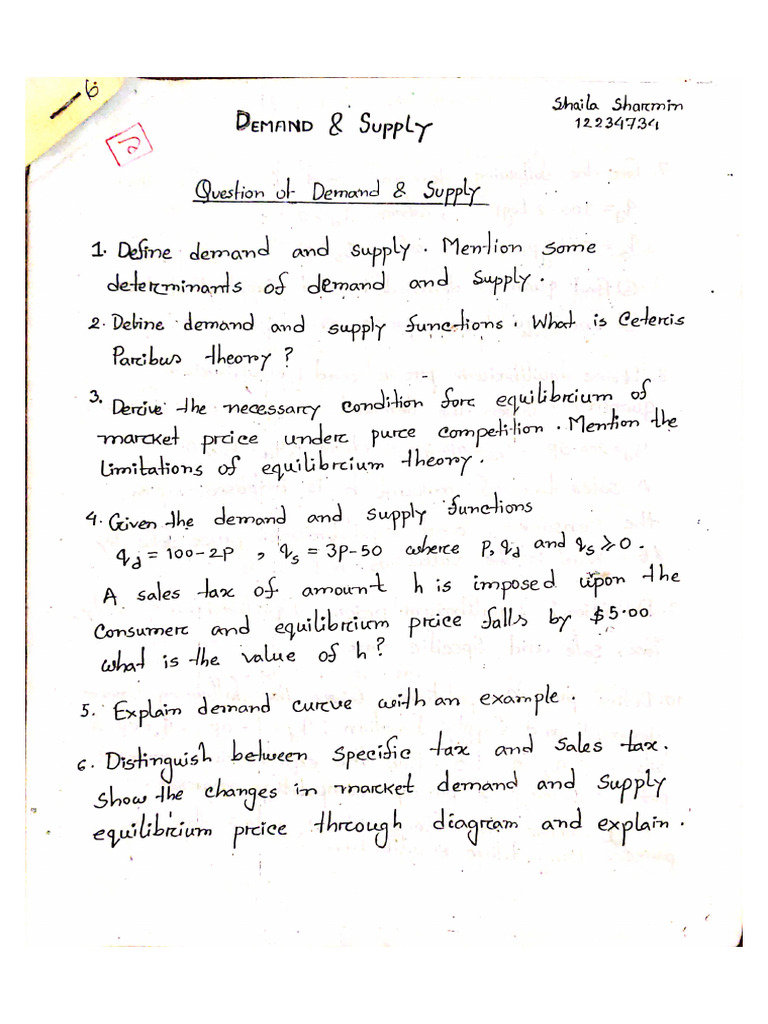 6
2
Shaila Sharmin
12234734
DEMAND & Supply
Question of Demand & Supply
1. Define demand and supply. Mention some
determinants of demand and supply.
2. Define demand and supply functions. What is Ceteris
Paribus theory?
3. Derive the necessary condition for equilibrium of
market price under pure competition. Mention the
limitations of equilibrium theory.
4. Given the demand and supply functions
q_d = 100-2P, q_s = 3P-50 where P, q_d and q_s ⩾ 0.
A sales tax of amount h is imposed upon the
consumer and equilibrium price falls by $5.00
what is the value of h?
5. Explain demand curve with an example.
6. Distinguish between specific tax and sales tax.
Show the changes in market demand and supply
equilibrium price through diagram and explain.